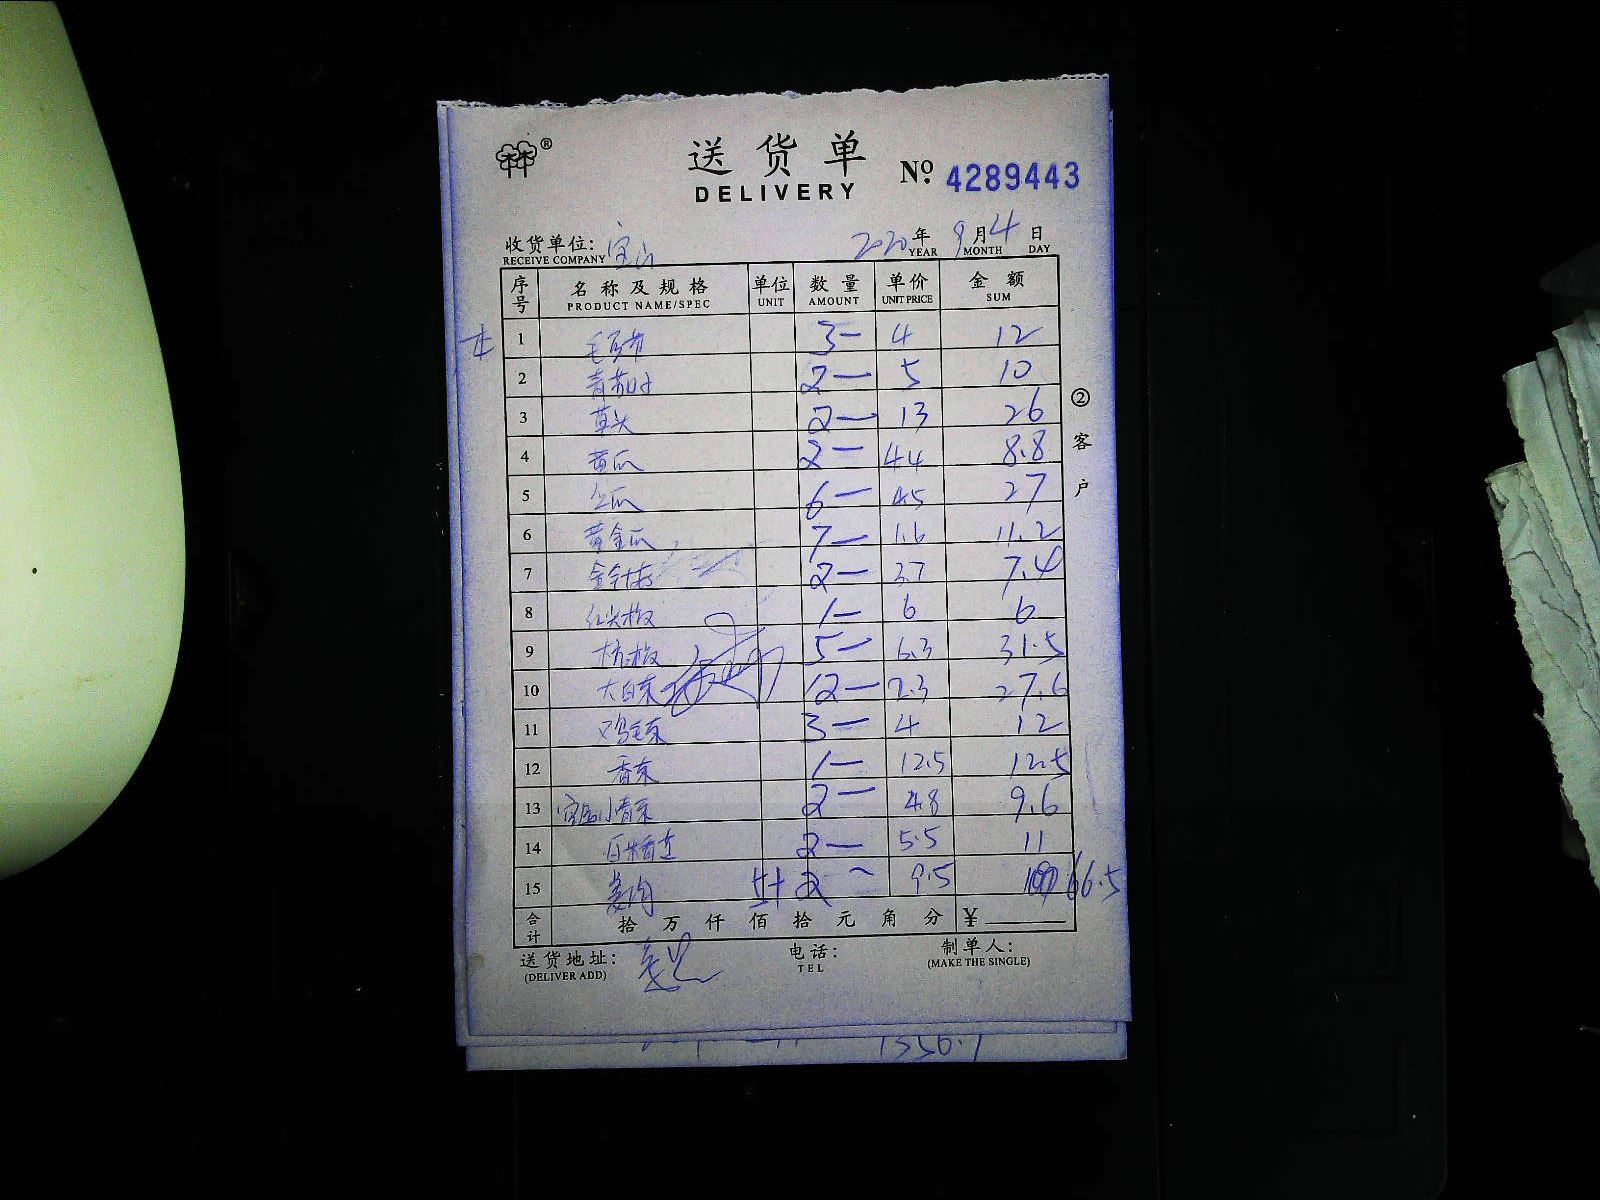 林®
送货单
DELIVERY
No. 4289443
收货单位: 宝山 2020年 9月 4日
RECEIVE COMPANY YEAR MONTH DAY
序号 名称及规格 单位 数量 单价 金额
PRODUCT NAME/SPEC UNIT AMOUNT UNIT PRICE SUM
1 3- 4 12
2 2- 5 10
3 草头 2- 13 26
4 黄瓜 2- 4.4 8.8
5 6- 4.5 27
6 黄金瓜 7- 1.6 11.2
7 金针菇 2- 3.7 7.4
8 红尖椒 1- 6 6
9 杭椒 5- 6.3 31.5
10 大白菜 12- 2.3 27.6
11 鸡毛菜 3- 4 12
12 香菜 1- 12.5 12.5
13 小青菜 2- 4.8 9.6
14 2- 5.5 11
15 9.5 66.5
合计 拾 万 仟 佰 拾 元 角 分 ¥
②客户
送货地址: 电话: 制单人:
(DELIVER ADD) TEL (MAKE THE SINGLE)
1350.1